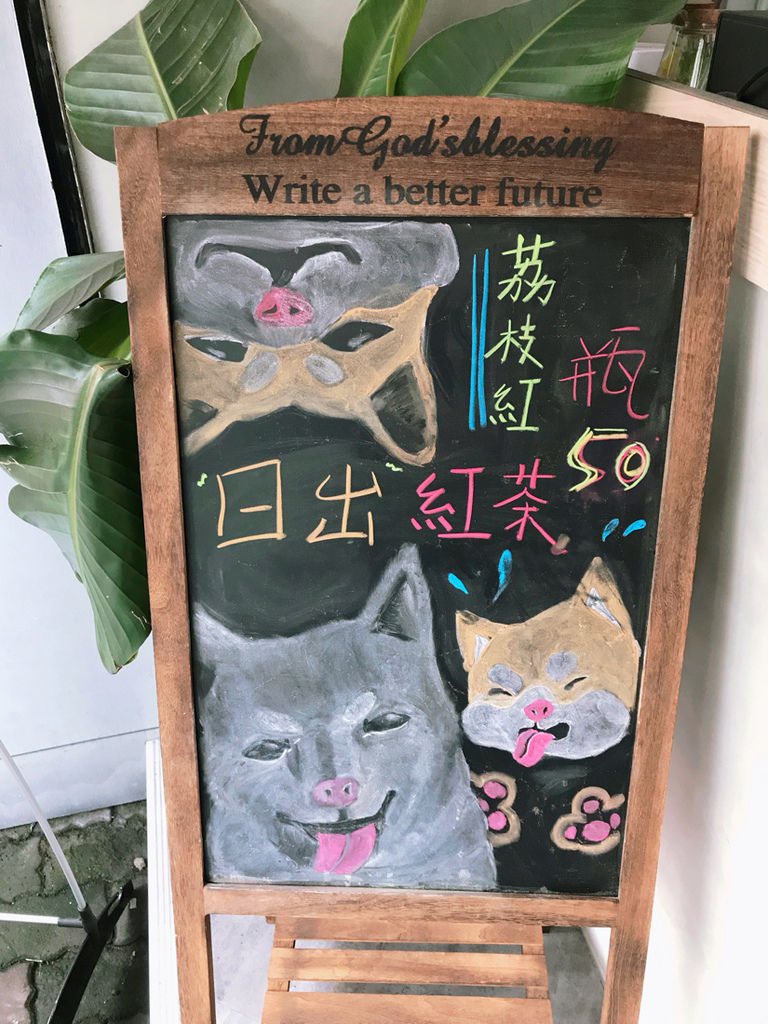 From God'sblessing
Write a better future
荔枝紅
瓶
50
日出紅茶